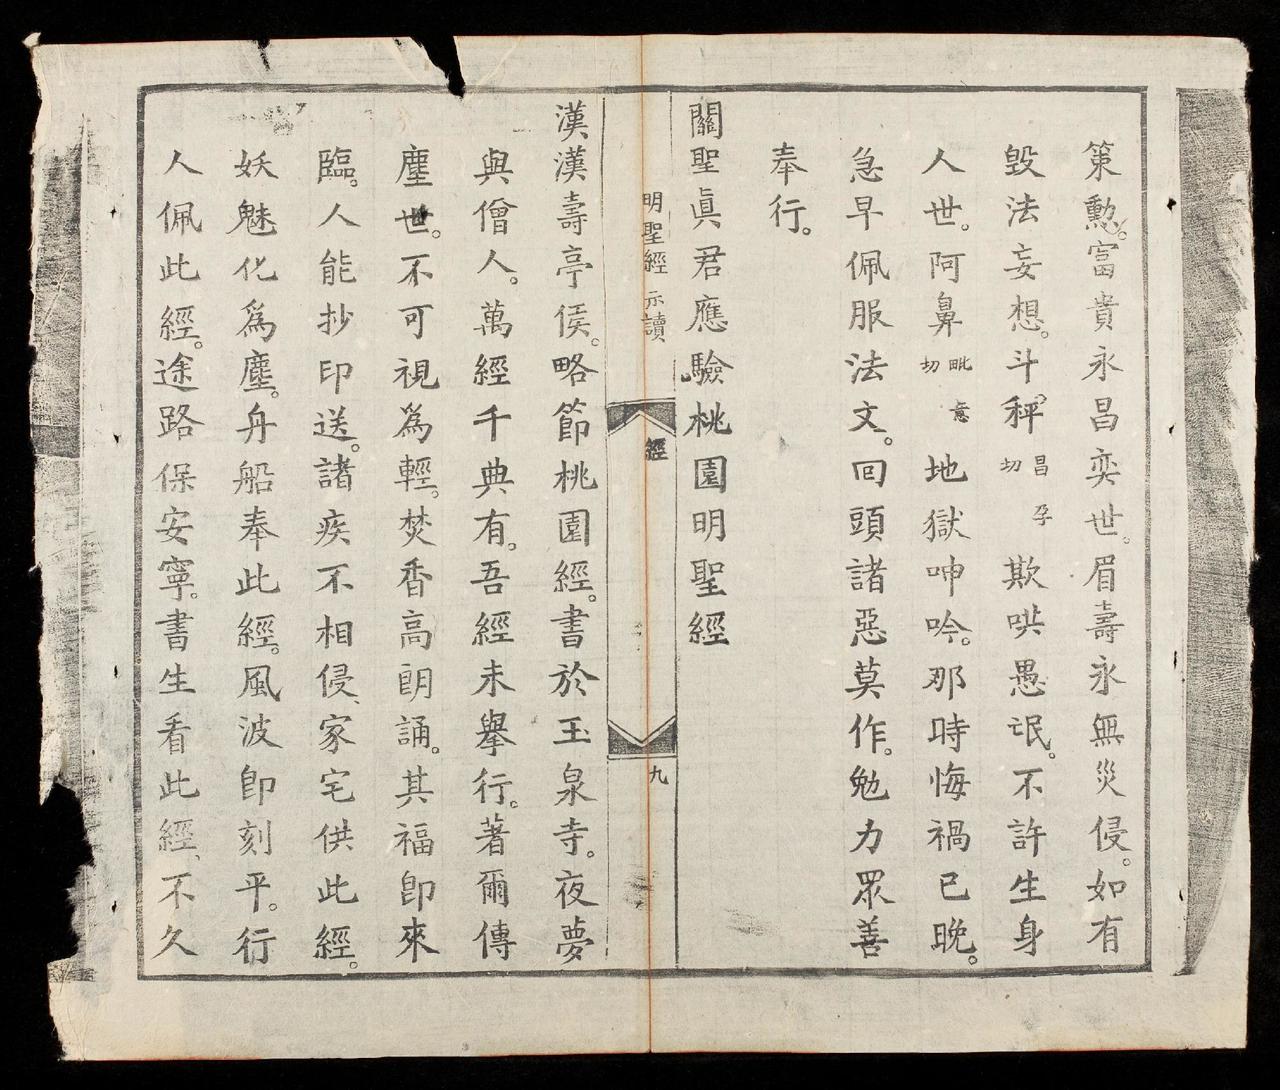 策勲。富貴永昌奕世。眉壽永無災侵。如有
毀法妄想。斗秤昌孕切欺哄愚氓。不許生身
人世。阿鼻毗意切地獄呻吟。那時悔禍已晚。
急早佩服法文。回頭諸惡莫作。勉力眾善
奉行。
關聖眞君應驗桃園明聖經
明聖經 示讀 經 九
漢漢壽亭侯。略節桃園經。書於玉泉寺。夜夢
與僧人。萬經千典有。吾經未舉行。著爾傳
塵世。不可視爲輕。焚香高朗誦。其福卽來
臨。人能抄印送。諸疾不相侵、家宅供此經。
妖魅化爲塵。舟船奉此經。風波卽刻平。行
人佩此經。途路保安寧。書生看此經、不久